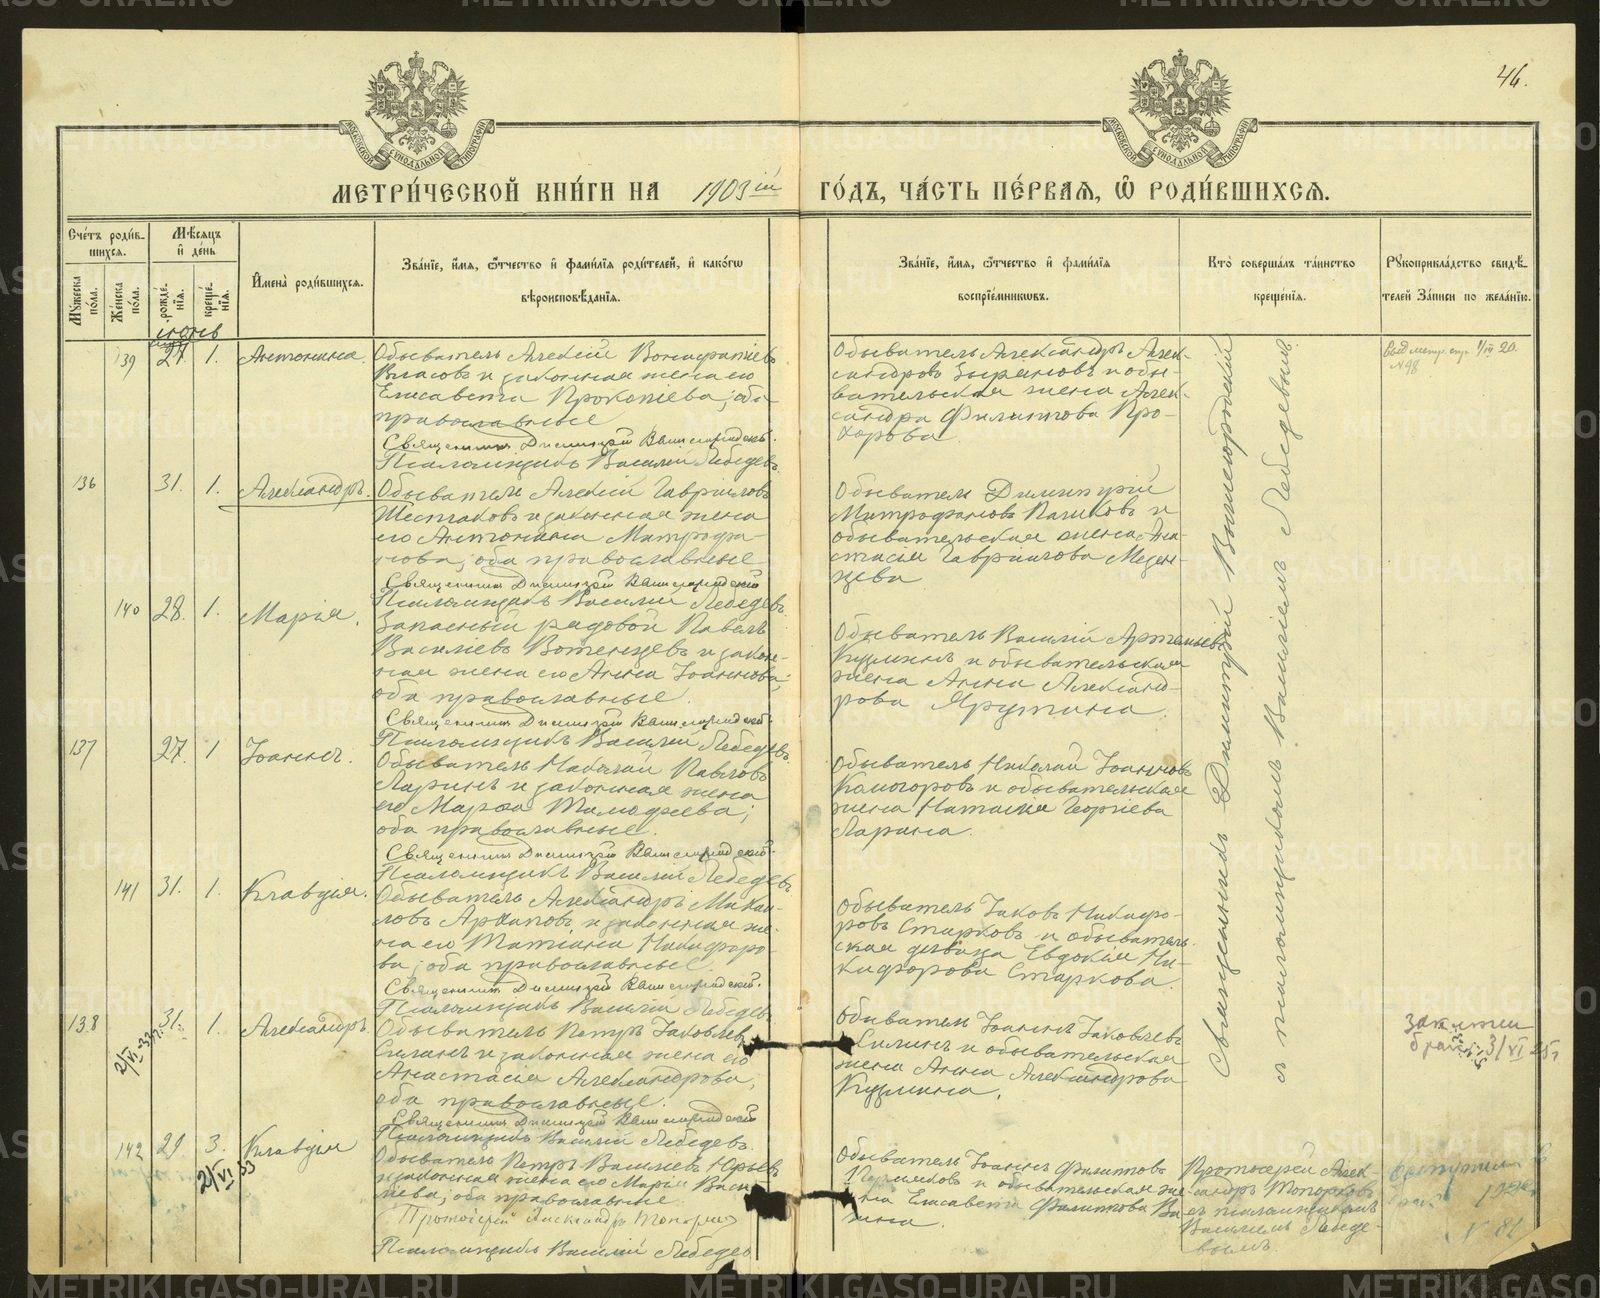 46.
МЕТРИ́ЧЕСКОЙ КНИ́ГИ НА 1903 ій ГО́ДЪ, ЧА́СТЬ ПЕ́РВАЯ, Ѡ РОДИ́ВШИХСЯ.
Сче́тъ роди́в-
шихся.
Мѣ́сяцъ
и́ де́нь
Му́жеска по́ла.
Же́нска по́ла.
рожде́-
нія.
креще́-
нія.
И҆мена̀ роди́вшихся.
Зва́нїе, и҆́мя, ѻ҆́тчество и҆ фами́лїя роди́телей, и҆ како́гѡ
вѣроисповѣ́данїя.
Зва́нїе, и҆́мя, ѻ҆́тчество и҆ фами́лїя
воспрїе́мниковъ.
Кто̀ соверша́лъ та́инство
креще́нїя.
Рꙋкоприкла́дство свидѣ́-
телей за́писи по жела́нїю.
139 27. 1. Антонина
Обыватель Алексій Вонифатіевъ
Власовъ и законная жена его
Елисавета Прокопіева; оба
православные
Священникъ Димитрій
Псаломщикъ Василій Лебедевъ
Обыватель Александръ Алек-
сандровъ Зыряновъ и обы-
вательская жена Алек-
сандра Филиппова Про-
хорова.
136 31. 1. Александръ.
Обыватель Алексій Гавріиловъ
Шестаковъ и законная жена
его Антонина Митрофа-
нова; оба православные
Священникъ Димитрій
Псаломщикъ Василій Лебедевъ
Обыватель Димитрій
Митрофановъ и
обывательская жена Ана-
стасія Гавріилова Меден-
цева
140 28. 1. Марія.
Запасный рядовой Павелъ
Василіевъ Вотенцевъ и закон-
ная жена его Анна Іоаннова;
оба православные.
Священникъ Димитрій
Псаломщикъ Василій Лебедевъ.
Обыватель Василій Артемьевъ
Кузминъ и обывательская
жена Анна Александ-
рова Ярутина.
137 27. 1 Іоаннъ.
Обыватель Николай Павловъ
Ларинъ и законная жена
его Марѳа Тимофеева;
оба православные.
Священникъ Димитрій
Псаломщикъ Василій Лебедевъ
Обыватель Николай Іоанновъ
Комогоровъ и обывательская
жена Наталія Георгіева
Ларина.
141 31. 1. Клавдія.
Обыватель Александръ Михаи-
ловъ Архиповъ и законная же-
на его Татіана Никифоро-
ва; оба православные.
Священникъ Димитрій
Псаломщикъ Василій Лебедевъ
Обыватель Іаковъ Никифо-
ровъ Старковъ и обыватель-
ская дѣвица Евдокія Ни-
кифорова Старкова.
138 31. 1. Александръ
Обыватель Петръ Іаковлевъ
Силинъ и законная жена его
Анастасія Александрова,
оба православные.
Священникъ Димитрій
Псаломщикъ Василій Лебедевъ.
Обыватель Іоаннъ Іаковлевъ
Силинъ и обывательская
жена Анна Александрова
Кузмина.
142 29. 3. Клавдія
21/VI 33
Обыватель Петръ Василіевъ Юрьевъ
и законная жена его Марія Васи-
лева; оба православные.
Протоіерей Александръ Топорковъ
Псаломщикъ Василій Лебедевъ
Обыватель Іоаннъ Филипповъ
и обывательская же-
на Елисавета Филиппова
Протоіерей Алек-
сандръ Топорковъ
съ псаломщикомъ
Василіемъ Лебеде-
вымъ.
Священникъ Димитрій
съ псаломщикомъ Василіемъ Лебедевымъ
брак 3/VI 25 г
N 82
METRIKI.GASO-URAL.RU